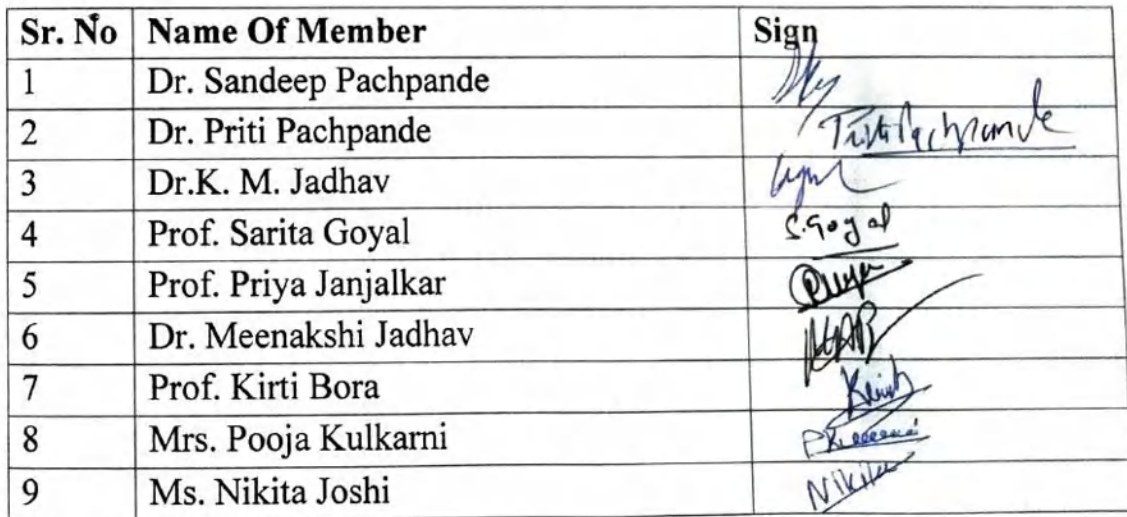 Sr. No Name Of Member Sign
1 Dr. Sandeep Pachpande
2 Dr. Priti Pachpande Priti Pachpande
3 Dr.K. M. Jadhav
4 Prof. Sarita Goyal S. Goyal
5 Prof. Priya Janjalkar Priya
6 Dr. Meenakshi Jadhav
7 Prof. Kirti Bora
8 Mrs. Pooja Kulkarni
9 Ms. Nikita Joshi Nikita